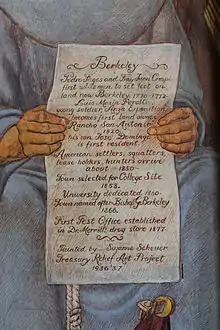 Berkeley
Pedro Fages and Fray Juan Crespi
first white men to set foot on
land now Berkeley. 1770-1772
Luis Maria Peralta
young soldier, Anza Expedition
becomes first land owner
Rancho San Antonio
1820
his son José Domingo
is first resident.
American settlers, squatters,
lease holders, hunters arrive
about 1850
Town selected for College Site
1858.
University dedicated 1860.
Town named after Bishop G. Berkeley
1866.
First Post Office established
in Dr. Merrill's drug store 1877.
Painted by Suzanne Scheuer
Treasury Relief Art Project
1936-37.